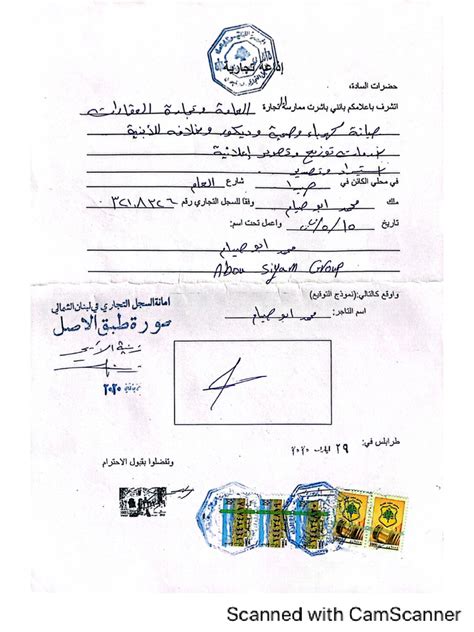 إذاعة تجارية
حضرات السادة،
اتشرف باعلامكم بانني باشرت ممارسة التجارة العامة وتجارة العقارات
صيانة كهرباء وصحية وديكور و للأبنية
خدمات توزيع إعلانية
استيراد وتصدير
في محلي الكائن في شارع العام
ملك محمد ابو صيام وفقا للسجل التجاري رقم ٣٢١٨٣٢٦
تاريخ واعمل تحت اسم:
محمد ابو صيام
Abou Siyam Group
واوقع كالتالي: (نموذج التوقيع)
امانة السجل التجاري في لبنان الشمالي
صورة طبق الاصل
اسم التاجر: محمد ابو صيام
٢٠٢٠
طرابلس في: ٢٩ ٢٠٢٠
وتفضلوا بقبول الاحترام
Scanned with CamScanner